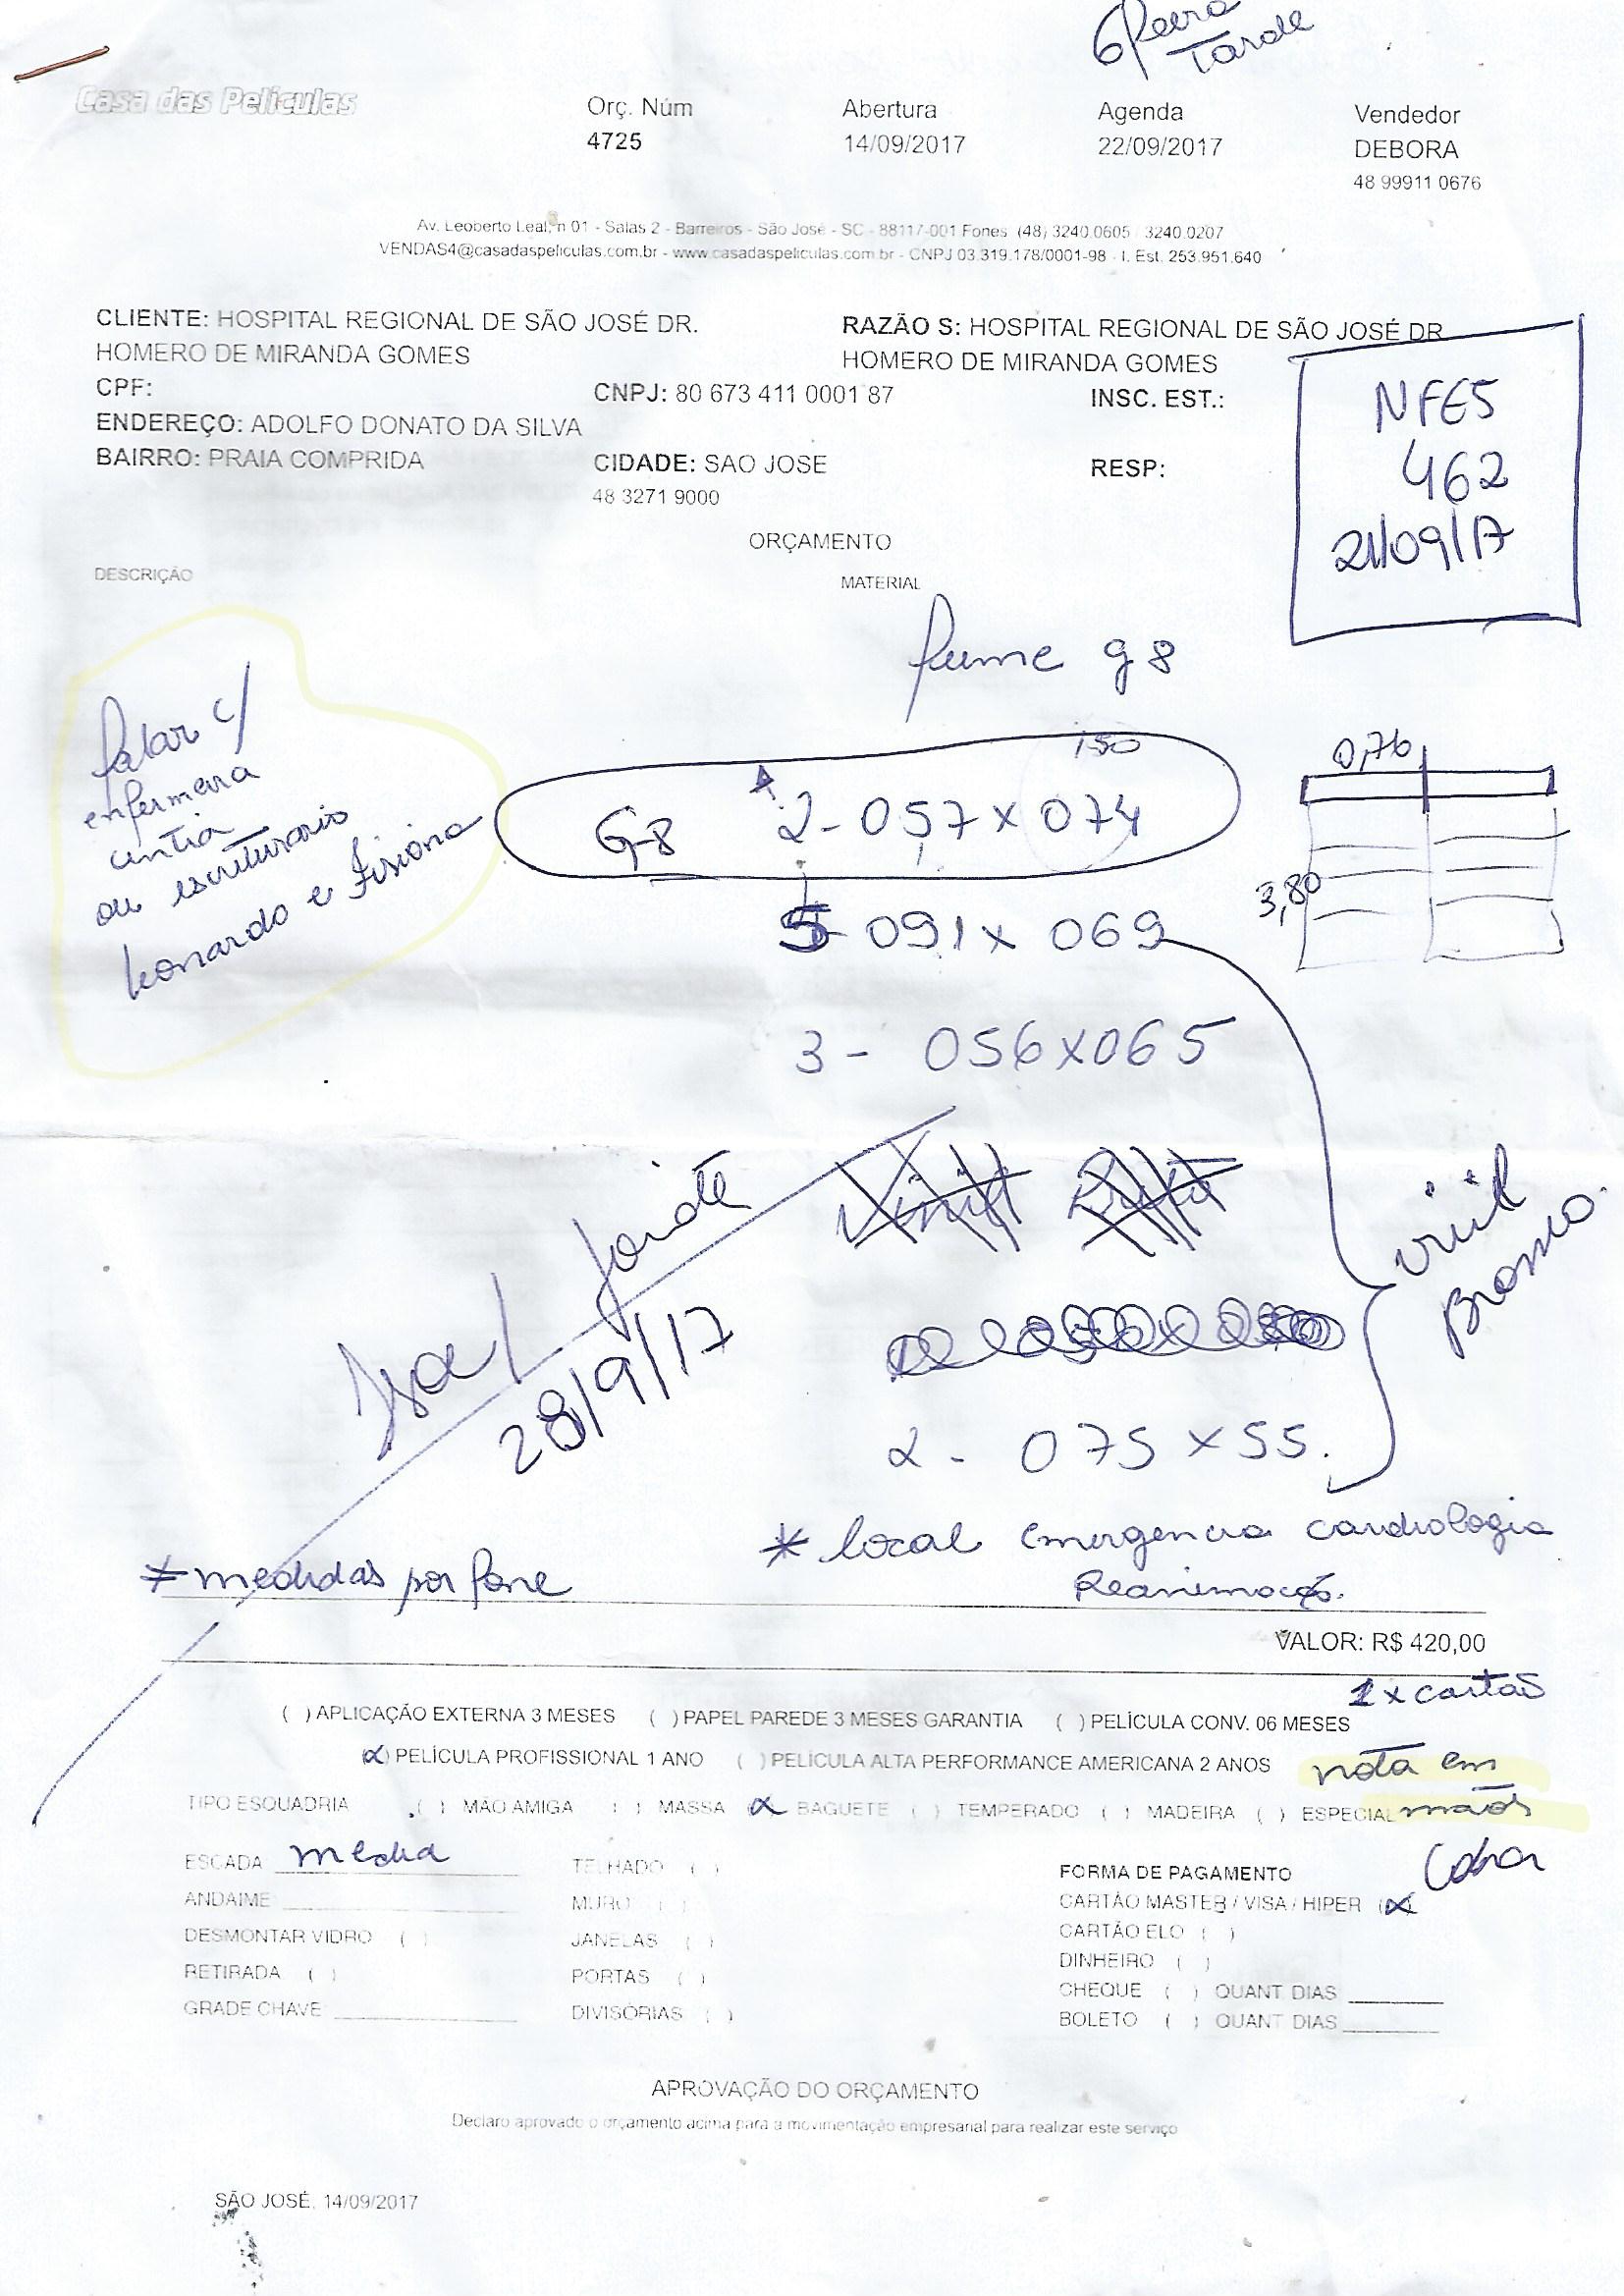 6ª feira
Tarde
Casa das Películas
Orç. Núm
4725
Abertura
14/09/2017
Agenda
22/09/2017
Vendedor
DEBORA
48 99911 0676
Av. Leoberto Leal, n 01 - Salas 2 - Barreiros - São José - SC - 88117-001 Fones (48) 3240.0605 / 3240.0207
VENDAS4@casadaspeliculas.com.br - www.casadaspeliculas.com.br - CNPJ 03.319.178/0001-98 - I. Est. 253.951.640
CLIENTE: HOSPITAL REGIONAL DE SÃO JOSÉ DR.
HOMERO DE MIRANDA GOMES
RAZÃO S: HOSPITAL REGIONAL DE SÃO JOSÉ DR
HOMERO DE MIRANDA GOMES
CPF:
CNPJ: 80 673 411 0001 87
INSC. EST.:
ENDEREÇO: ADOLFO DONATO DA SILVA
BAIRRO: PRAIA COMPRIDA
CIDADE: SAO JOSE
RESP:
48 3271 9000
NFES
462
21/09/17
ORÇAMENTO
DESCRIÇÃO
MATERIAL
fume g8
falar c/
enfermeira
cintia
ou escriturario
Leonardo e
150
G8 2 - 057 x 074
5 - 091 x 069
3 - 056 x 065
0,76
3,80
28/9/17
vinil
Branco.
2 - 075 x 55.
* local emergencia cardiologia
Reanimação.
* medidas por fone
VALOR: R$ 420,00
1 x cartão
( ) APLICAÇÃO EXTERNA 3 MESES ( ) PAPEL PAREDE 3 MESES GARANTIA ( ) PELÍCULA CONV. 06 MESES
(x) PELÍCULA PROFISSIONAL 1 ANO ( ) PELÍCULA ALTA PERFORMANCE AMERICANA 2 ANOS
nota em
mãos
TIPO ESQUADRIA ( ) MÃO AMIGA ( ) MASSA (x) BAGUETE ( ) TEMPERADO ( ) MADEIRA ( ) ESPECIAL
Cobrar
ESCADA media
TELHADO ( )
FORMA DE PAGAMENTO
ANDAIME
MURO ( )
CARTÃO MASTER / VISA / HIPER (x)
DESMONTAR VIDRO ( )
JANELAS ( )
CARTÃO ELO ( )
RETIRADA ( )
PORTAS ( )
DINHEIRO ( )
GRADE CHAVE
DIVISÓRIAS ( )
CHEQUE ( ) QUANT DIAS
BOLETO ( ) QUANT DIAS
APROVAÇÃO DO ORÇAMENTO
Declaro aprovado o orçamento acima para a movimentação empresarial para realizar este serviço
SÃO JOSÉ, 14/09/2017